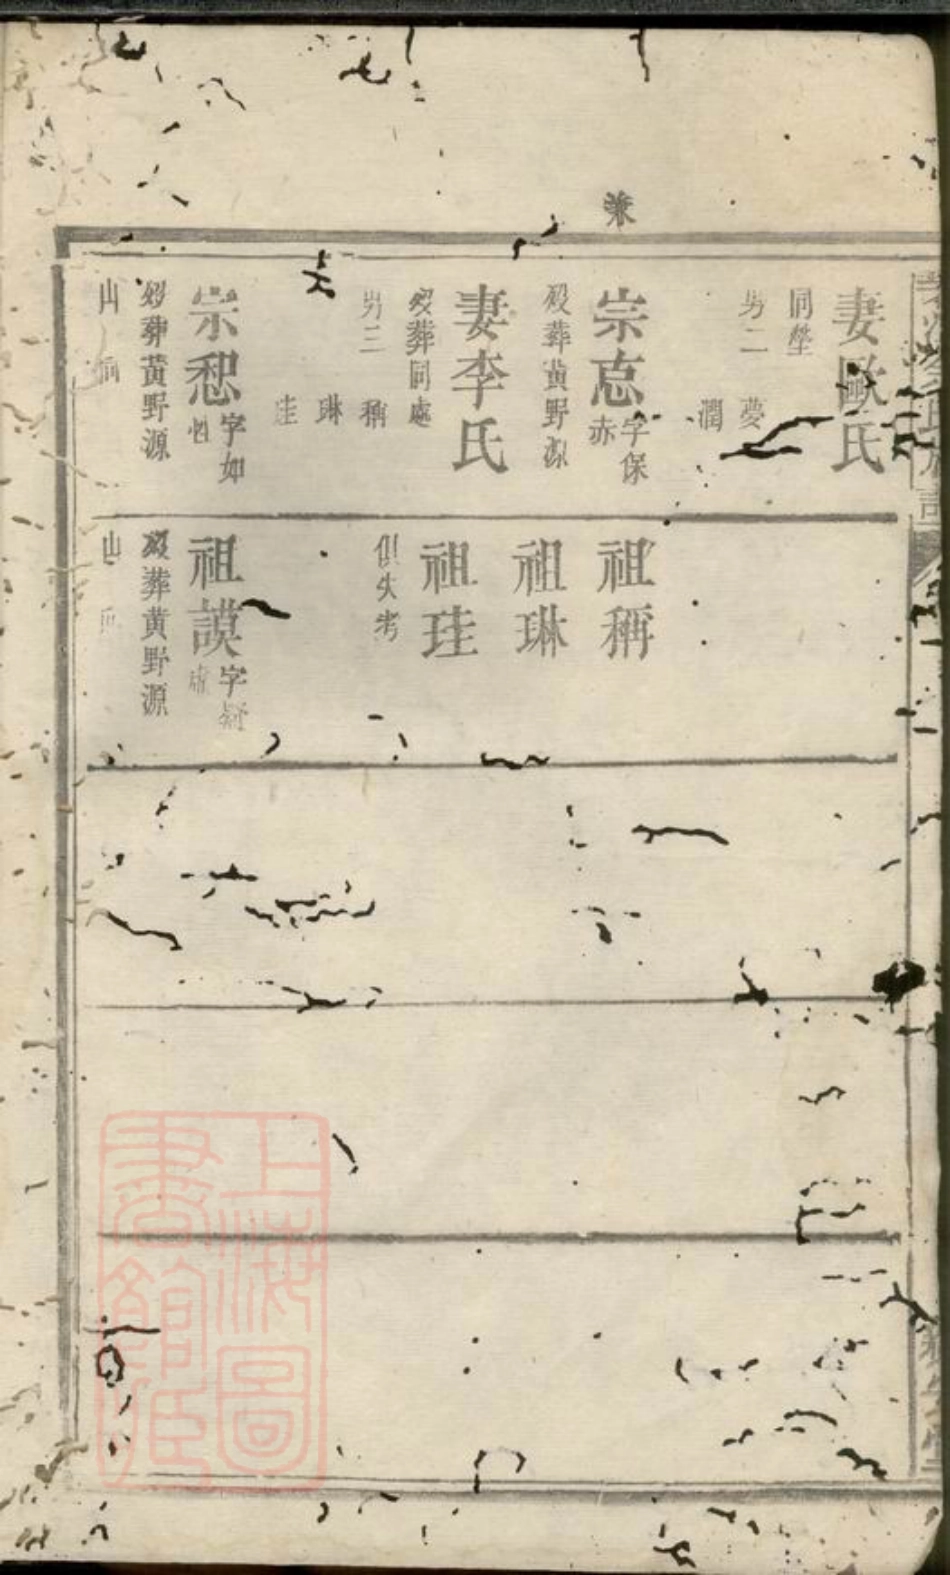 兼
妻歐氏
同塋
男二 夢
潤
宗忘 字保赤
歿葬黃野源
妻李氏
歿葬同處
男三 稱
琳
珪
宗恕 字如
歿葬黃野源
山
祖稱
祖琳
祖珪
俱失考
祖謨 字疑
歿葬黃野源
山
上海圖書館藏